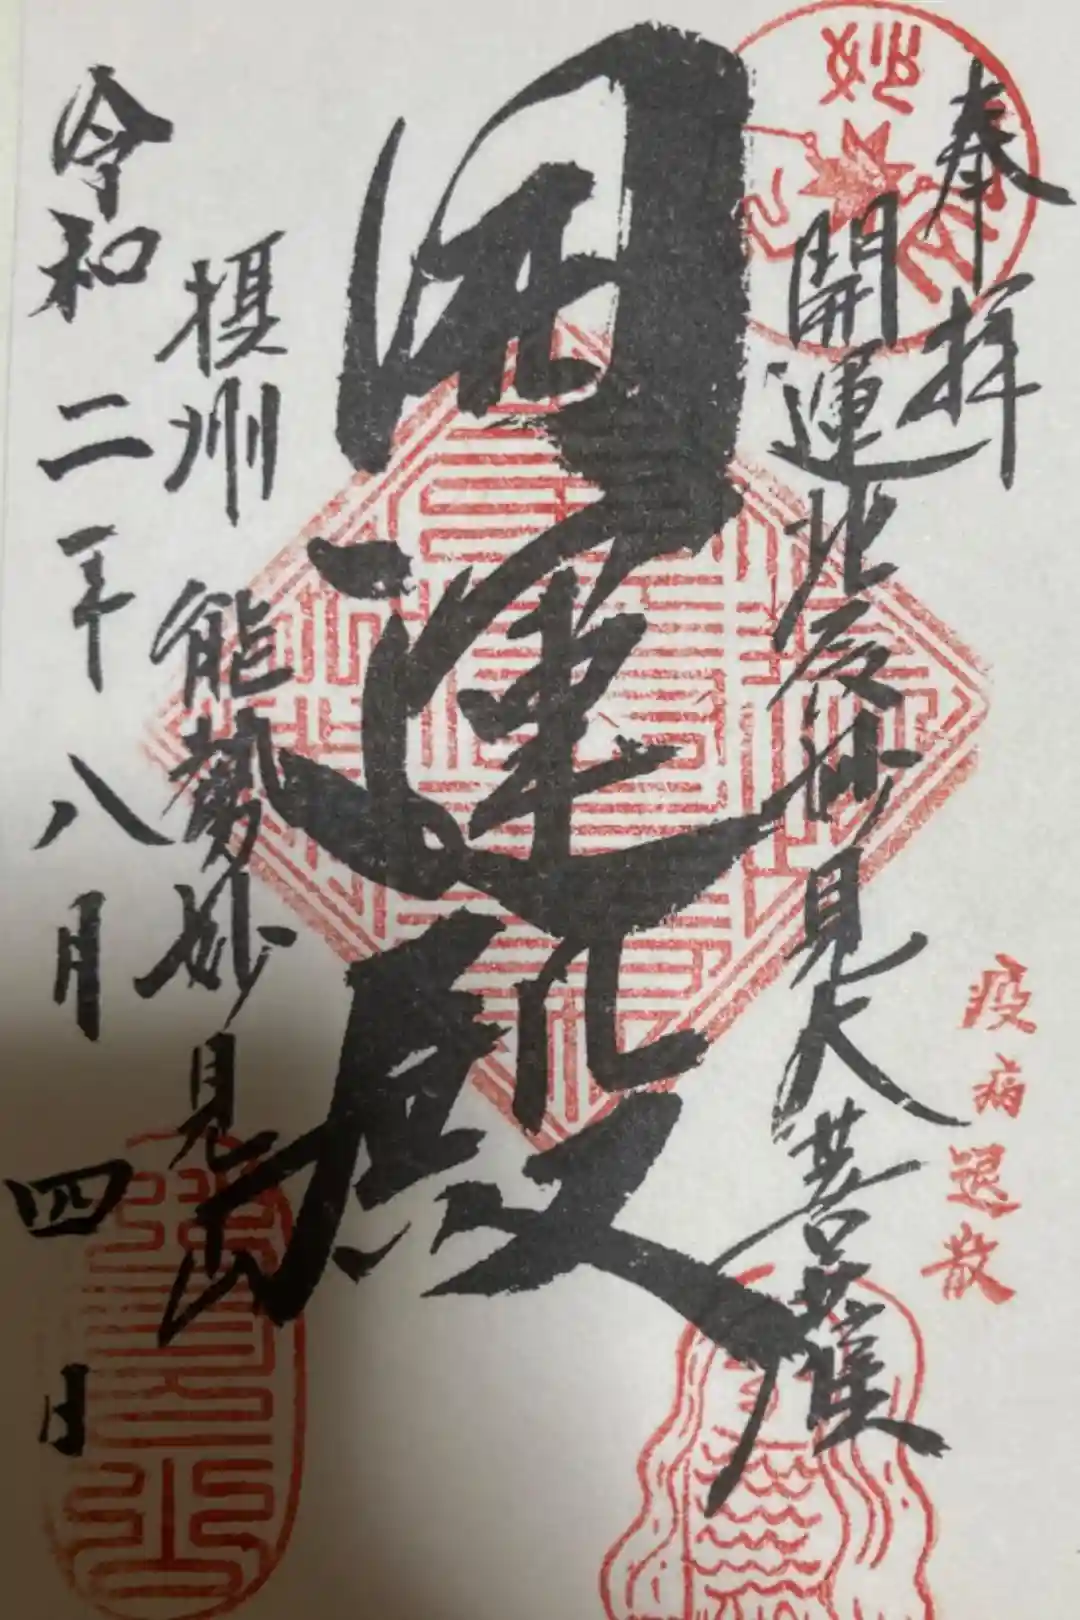 奉拝
疫病退散
開運北辰妙見大菩薩
開運殿
摂州 能勢妙見山
令和二年八月四日
妙見